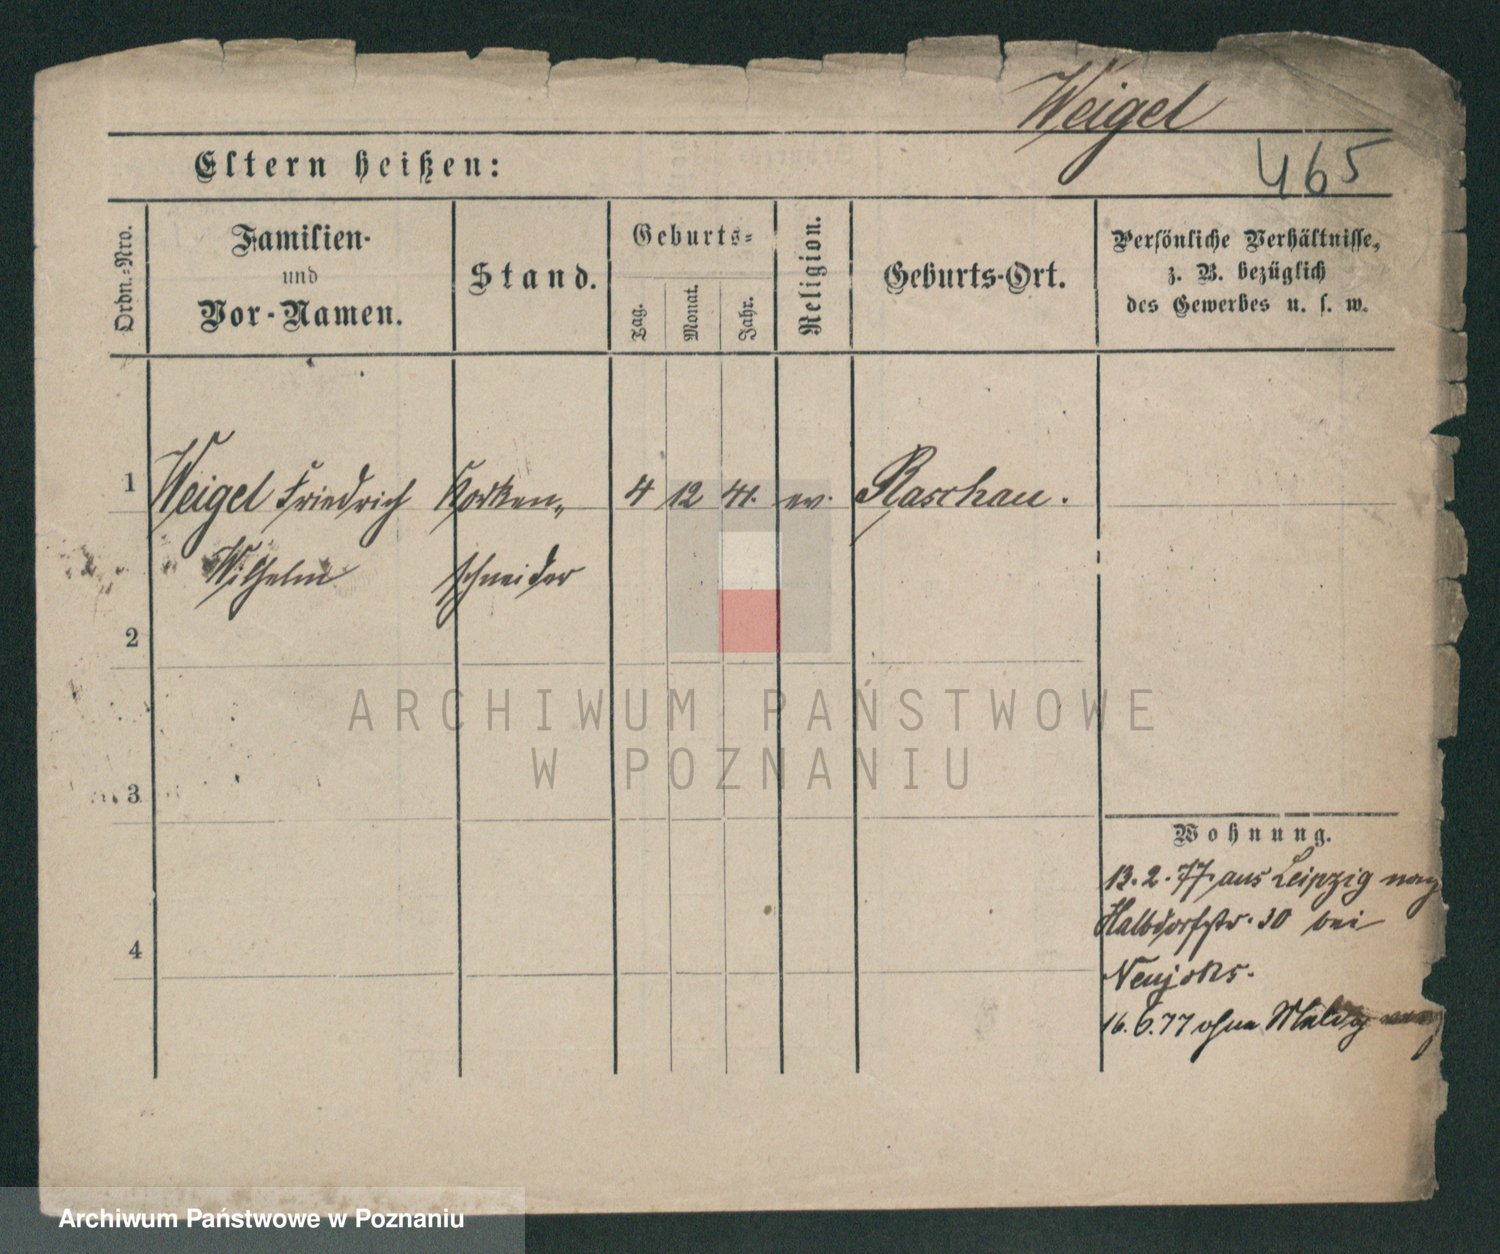 Weigel
465
Eltern heißen:
Ordn.-Nro.
Familien-
und
Vor-Namen.
Stand.
Geburts-
Tag.
Monat.
Jahr.
Religion.
Geburts-Ort.
Persönliche Verhältnisse,
z. B. bezüglich
des Gewerbes u. s. w.
1 Weigel Friedrich Korken- 4 12 41. ev. Raschau.
Wilhelm schneider
2
3
4
Wohnung.
13.2.77 aus Leipzig nach
Halbdorfstr. 30 bei
16.6.77 ohne Meldg
ARCHIWUM PAŃSTWOWE
W POZNANIU
Archiwum Państwowe w Poznaniu